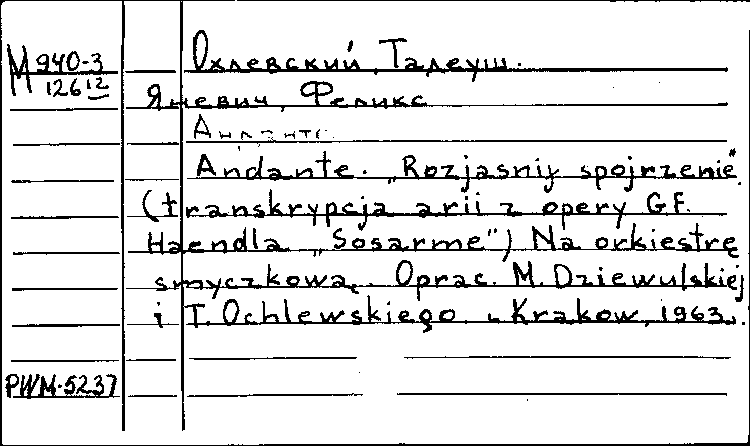 М 940-3
126 12
Охлевский, Тадеуш.
Яневич, Феликс
Анданте.
Andante. „Rozjasnij spojrzenie"
(transkrypcja arii z opery G.F.
Haendla „Sosarme") Na orkiestrę
smyczkową. Oprac. M. Dziewulskiej
i T. Ochlewskiego. Krakow, 1963.
PWM-5237